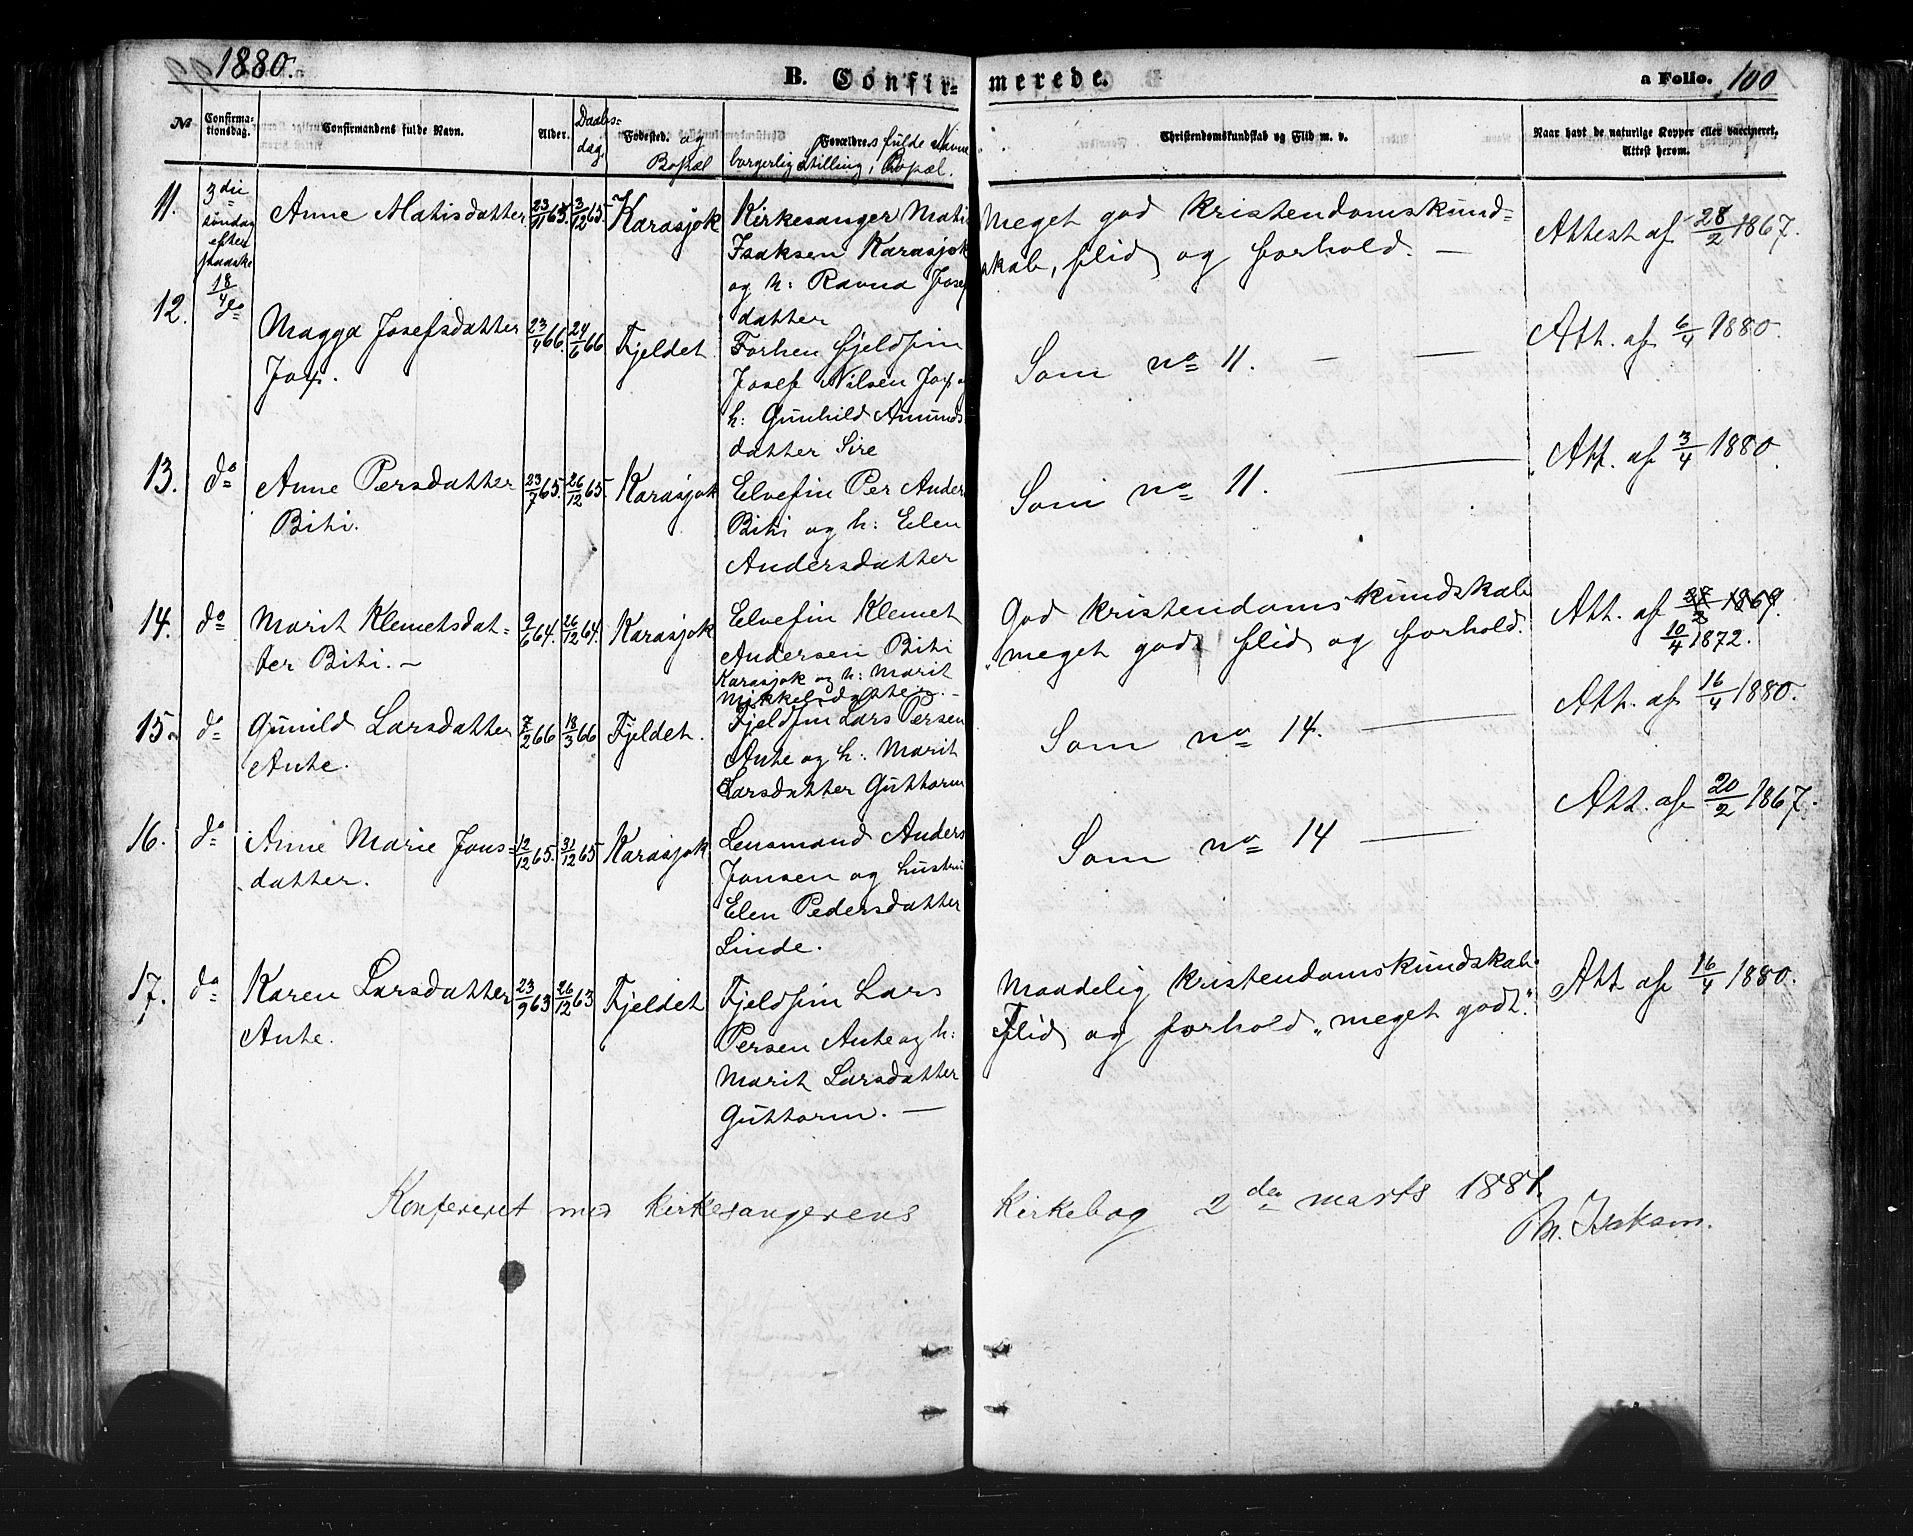 1880.
B. Confir-
merede.
a Folio. 100
No
Confirma-
tionsdag.
Confirmandens fulde Navn.
Alder.
Daabs-
dag.
Fødested. og
Bopæl
Forældres fulde Navne
borgerlig Stilling, Bopæl.
Christendomskundskab og Flid m. v.
Naar havt de naturlige Kopper eller vaccineret,
Attest herom.
11.
3die
søndag
efter
paaske
18/4
Anne Matisdatter
23/11 65.
3/12 65.
Karasjok
Kirkesanger Matis
Isaksen Karasjok
og h: Ravna Josef
datter
Meget god kristendomskund=
skab, flid og forhold. —
Attest af 28/2 1867.
12.
do
Magga Josefsdatter
Jox.
23/4 66.
24/6 66
Fjeldet
Forhen fjeldfin
Josef Nilsen Jox og
h: Gunhild Amunds
datter Sire
Som no 11. — —
Att. af 6/4 1880.
13.
do
Anne Persdatter
Biti.
23/7 65.
26/12 65.
Karasjok
Elvefin Per Anders
Biti og h: Elen
Andersdatter
Som no 11. —
Att. af 3/4 1880.
14.
do
Marit Klemetsdat-
ter Biti. —
9/6 64.
26/12 64.
Karasjok
Elvefin Klemet
Andersen Biti
Karasjok og h: Marit
Mikkelsdatter. —
God kristendomskundskab
"meget god" flid og forhold.
Att. af 28/2 1869.
10/4 1872.
15.
do
Gunild Larsdatter
Ante.
7/2 66
18/3 66
Fjeldet.
Fjeldfin Lars Persen
Ante og h: Marit
Larsdatter Guttorm
Som no 14. —
Att. af 16/4 1880.
16.
do
Anne Marie Jons-
datter.
12/12 65.
31/12 65
Karasjok
Lensmand Anders
Jonsen og hustru
Elen Pedersdatter
Linde.
Som no 14 —
Att. af 20/2 1867.
17.
do
Karen Larsdatter
Ante.
23/9 63
26/12 63
Fjeldet
Fjeldfin Lars
Persen Ante og h:
Marit Larsdatter
Guttorm. —
Maadelig kristendomskundskab
Flid og forhold "meget godt".
Att af 16/4 1880.
Konfereret med kirkesangerens
Kirkebog 2den marts 1881.
M. Isaksen.